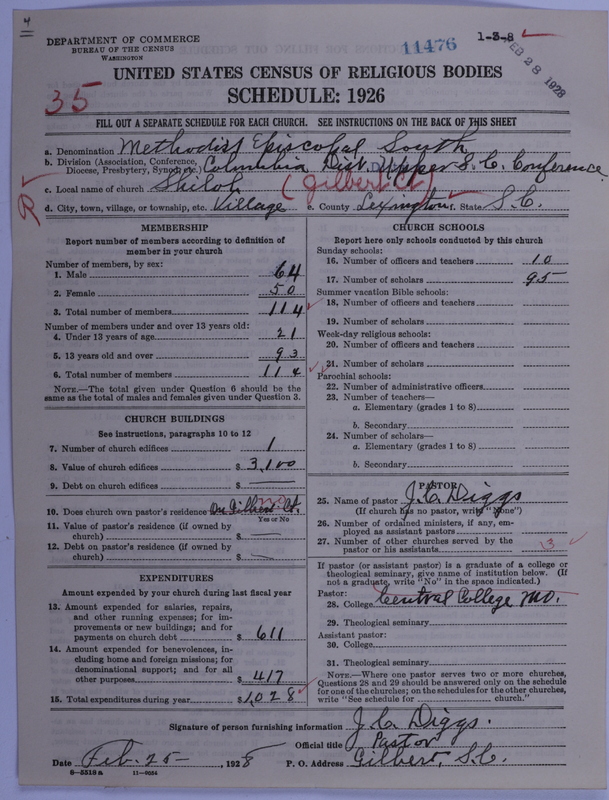 4
DEPARTMENT OF COMMERCE
BUREAU OF THE CENSUS
WASHINGTON
11476
1-3-8
FEB 28 1928
UNITED STATES CENSUS OF RELIGIOUS BODIES
35
SCHEDULE: 1926
FILL OUT A SEPARATE SCHEDULE FOR EACH CHURCH. SEE INSTRUCTIONS ON THE BACK OF THIS SHEET
a. Denomination Methodist Episcopal South
b. Division (Association, Conference, Diocese, Presbytery, Synod, etc.) Columbia Dist. Upper S.C. Conference
c. Local name of church Shiloh (Gilbert Ct)
R
d. City, town, village, or township, etc. Village e. County Lexington f. State S.C.
MEMBERSHIP
Report number of members according to definition of
member in your church
Number of members, by sex:
1. Male 64
2. Female 50
3. Total number of members 114
Number of members under and over 13 years old:
4. Under 13 years of age 21
5. 13 years old and over 93
6. Total number of members 114
NOTE.—The total given under Question 6 should be the
same as the total of males and females given under Question 3.
CHURCH BUILDINGS
See instructions, paragraphs 10 to 12
7. Number of church edifices 1
8. Value of church edifices $ 3,100
9. Debt on church edifices $
10. Does church own pastor's residence On Gilbert Ct. no
Yes or No
11. Value of pastor's residence (if owned by
church) $
12. Debt on pastor's residence (if owned by
church) $
EXPENDITURES
Amount expended by your church during last fiscal year
13. Amount expended for salaries, repairs,
and other running expenses; for im-
provements or new buildings; and for
payments on church debt $ 611
14. Amount expended for benevolences, in-
cluding home and foreign missions; for
denominational support; and for all
other purposes $ 417
15. Total expenditures during year $ 1,028
CHURCH SCHOOLS
Report here only schools conducted by this church
Sunday schools:
16. Number of officers and teachers 10
17. Number of scholars 95
Summer vacation Bible schools:
18. Number of officers and teachers
19. Number of scholars
Week-day religious schools:
20. Number of officers and teachers
21. Number of scholars
Parochial schools:
22. Number of administrative officers
23. Number of teachers—
a. Elementary (grades 1 to 8)
b. Secondary
24. Number of scholars—
a. Elementary (grades 1 to 8)
b. Secondary
PASTOR
25. Name of pastor J.C. Diggs
(If church has no pastor, write "None")
26. Number of ordained ministers, if any, em-
ployed as assistant pastors
27. Number of other churches served by the
pastor or his assistants 3
If pastor (or assistant pastor) is a graduate of a college or
theological seminary, give name of institution below. (If
not a graduate, write "No" in the space indicated.)
Pastor:
28. College Central College Mo.
29. Theological seminary
Assistant pastor:
30. College
31. Theological seminary
NOTE.—Where one pastor serves two or more churches,
Questions 28 and 29 should be answered only on the schedule
for one of the churches; on the schedules for the other churches,
write "See schedule for church."
Signature of person furnishing information J.C. Diggs.
Official title Pastor
Date Feb. 25—, 1928 P. O. Address Gilbert, S.C.
8—5518a 11—9034